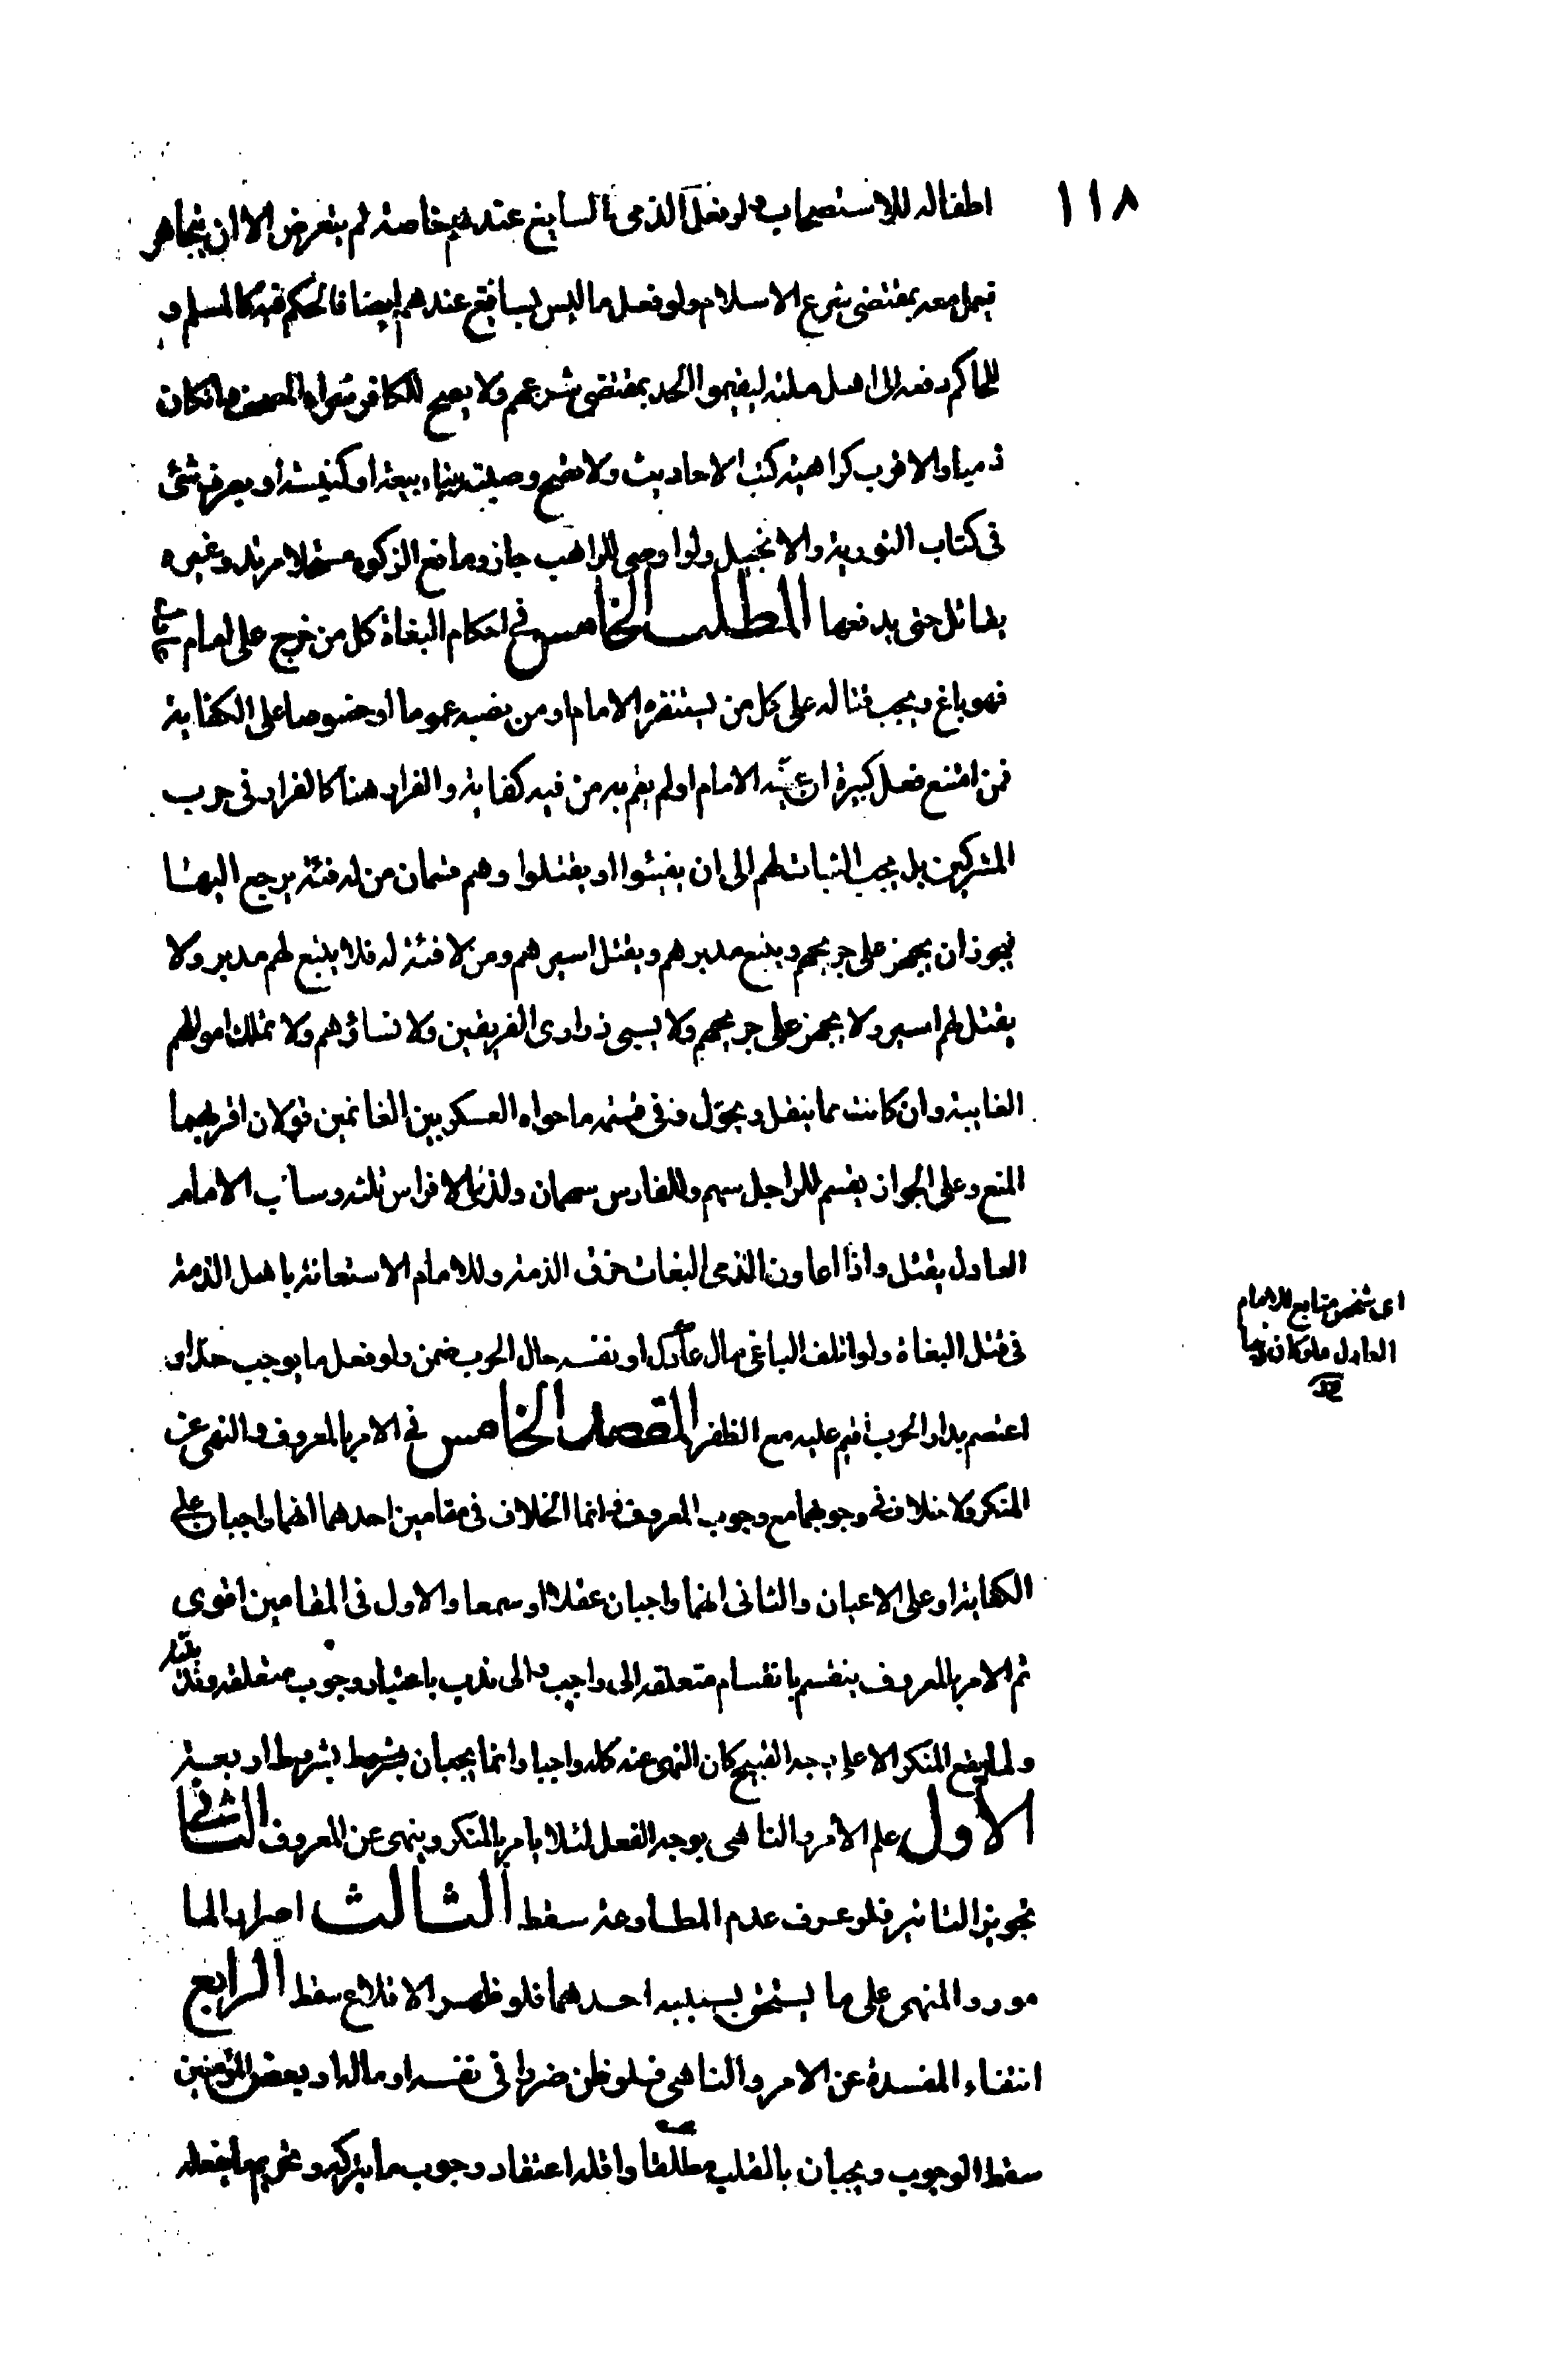 ١١٨
اطفاله للاستصحاب ولو فعل الذمى السايغ عندهم خاصة لم يتعرض الا ان يتجاهر
فيعمل معه بمقتضى شرع الاسلام ولو فعل ما ليس بسائغ عندهم ايضا فالحكم فيه كالمسلم و
للحاكم دفعه الى اهل ملته ليقيموا الحد بمقتضى شرعهم ولا يصح للكافر شراء المصحف وان كان
ذميا والاقرب كراهية كتب الاحاديث ولا تصح وصيته ببناء بيعة او كنيسة او بصرف شئ
فى كتاب التورية والانجيل ولو اوصى للراهب جاز ومانع الزكوه مستحلا مرتد وغيره
يقاتل حتى يدفعها المطلب الخامس فى احكام البغاة كل من خرج على امام
فهو باغ ويجب قتاله على كل من يستنفره الامام او من نصبه عموما او خصوصا على الكفاية
فمن امتنع فعل كبيرة ان عينه الامام او لم يقم به من فيه كفاية والفرار هنا كالفرار فى حرب
المشركين بل يجب الثبات لهم الى ان يفيئوا او يقتلوا وهم قسمان من له فئة يرجع اليها
فيجوز ان يجهز على جريحهم ويتبع مدبرهم ويقتل اسيرهم ومن لا فئة له فلا يتبع لهم مدبر ولا
يقتل لهم اسير ولا يجهز على جريحهم ولا يسبى ذرارى الفريقين ولا نساؤهم ولا تملك اموالهم
الغايبة وان كانت مما ينقل ويحوّل وفى قسمة ما حواه العسكر بين الغانمين قولان اقربهما
المنع وعلى الجواز يقسم للراجل سهم وللفارس سهمان ولذى الافراس ثلثه وساب الامام
العادل يقتل واذا اعاون الذمى البغات خرق الذمة وللامام الاستعانة باهل الذمة
فى قتل البغاة ولو اتلف الباغى مال عادل او نفسه حال الحرب ضمن ولو فعل ما يوجب حدّا و
اعتصم بدار الحرب اقيم عليه مع الظفر المقصد الخامس فى الامر بالمعروف والنهى عن
المنكر ولا خلاف فى وجوبهما مع وجوب المعروف وانما الخلاف فى مقامين احدهما انهما واجبان على
الكفاية او على الاعيان والثانى انهما واجبان عقلا او سمعا والاول فى المقامين اقوى
ثم الامر بالمعروف ينقسم بانقسام متعلقه الى واجب والى ندب باعتبار وجوب متعلقه وندبيته
ولما لم يقع المنكر الا على وجه القبيح كان النهى عنه كله واجبا وانما يجبان بشروط اربعة
الاول علم الأمر والناهى بوجه الفعل لئلا يامر بالمنكر وينهى عن المعروف الثانى
تجويز التاثير فلو عرف عدم المطاوعة سقط الثالث اصرار الما
مور والمنهى على ما يستحق بسببه احدهما فلو ظهر الاقلاع سقط الرابع
انتفاء المفسدة عن الامر والناهى فلو ظن ضررا فى نفسه او ماله او بعض المؤمنين
سقط الوجوب ويجبان بالقلب مطلقا واقله اعتقاد وجوب ما يتركه وتحريم ما يفعله
اى شخص متابع للامام
العادل